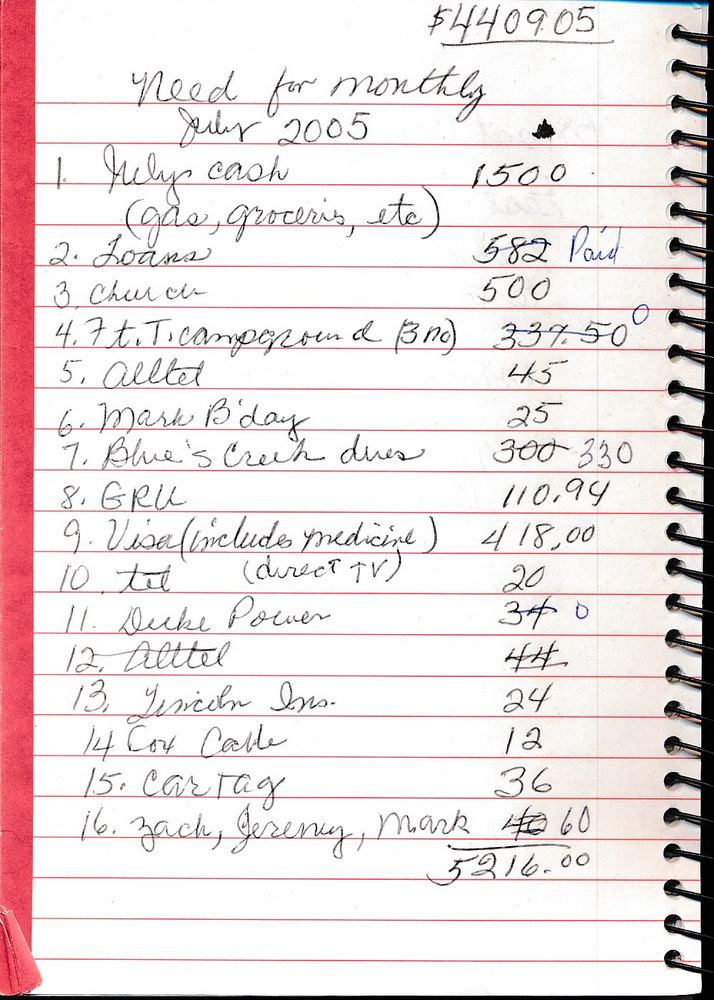 $4409.05
Need for monthly
July 2005
1. July cash 1500
(gas, groceris, etc)
2. Loans 582 Paid
3. Church 500
4. Ft. T. campground (3 mo) 337.50 0
5. Alltel 45
6. Mark B'day 25
7. Blue's Creek dues 300 330
8. GRU 110.94
9. Visa (includes medicine) 418.00
10. tel (direct TV) 20
11. Duke Power 34 0
12. Alltel 44
13. Lincoln Ins. 24
14 Cox Cable 12
15. Car Tag 36
16. Zach, Jeremy, Mark 40 60
5216.00